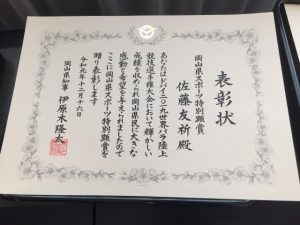 表彰状
岡山県スポーツ特別顕賞
佐藤友祈殿
あなたはドバイ二〇一九世界パラ陸上
競技選手権大会において輝かしい
成績を収められ岡山県民に大きな
感動と希望を与えられましたので
ここに岡山県スポーツ特別顕賞を
贈り表彰します
令和元年十二月十六日
岡山県知事 伊原木隆太